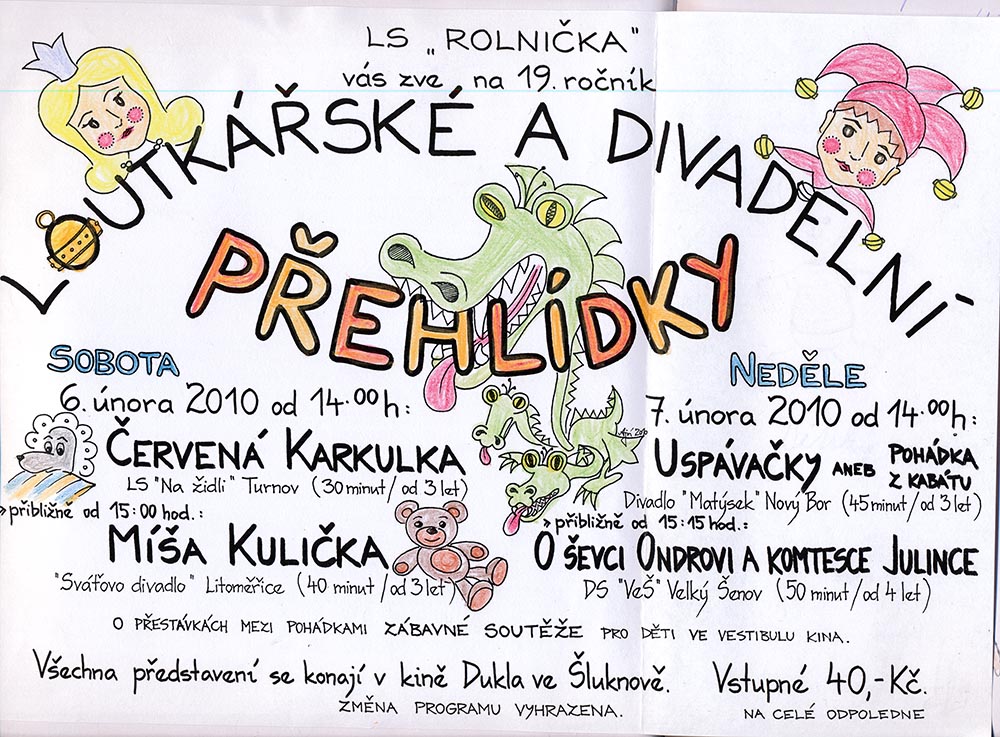 LS „ROLNIČKA"
vás zve na 19. ročník
LOUTKÁŘSKÉ A DIVADELNÍ
PŘEHLÍDKY
SOBOTA
6. února 2010 od 14.00 h:
ČERVENÁ KARKULKA
LS "Na židli" Turnov (30 minut/od 3 let)
» přibližně od 15:00 hod.:
MÍŠA KULIČKA
"Sváťovo divadlo" Litoměřice (40 minut/od 3 let)
NEDĚLE
7. února 2010 od 14.00 h:
USPÁVAČKY ANEB POHÁDKA
Z KABÁTU
Divadlo "Matýsek" Nový Bor (45 minut/od 3 let)
» přibližně od 15:15 hod.:
O ŠEVCI ONDROVI A KOMTESCE JULINCE
DS "VeŠ" Velký Šenov (50 minut/od 4 let)
O PŘESTÁVKÁCH MEZI POHÁDKAMI ZÁBAVNÉ SOUTĚŽE PRO DĚTI VE VESTIBULU KINA.
Všechna představení se konají v kině Dukla ve Šluknově. Vstupné 40,-Kč.
ZMĚNA PROGRAMU VYHRAZENA. NA CELÉ ODPOLEDNE